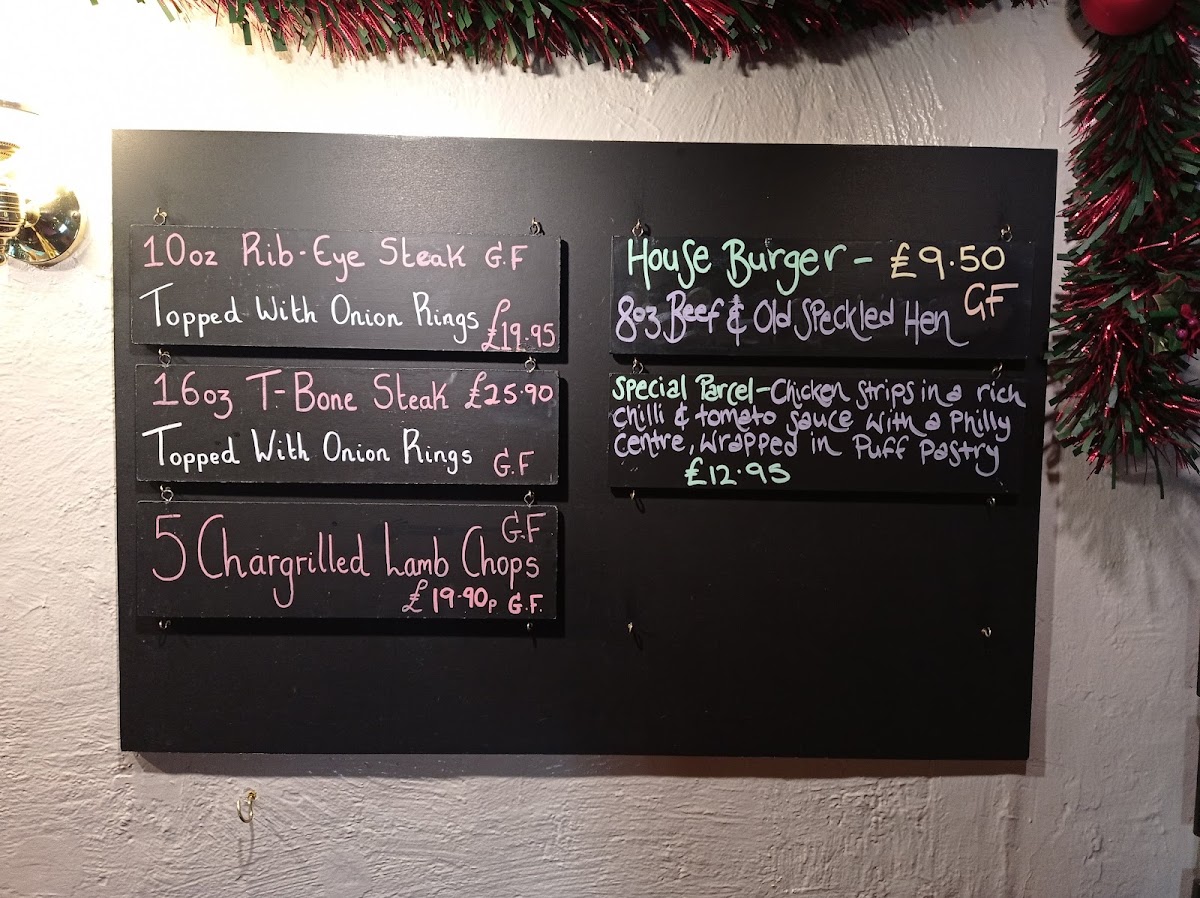 10oz Rib-Eye Steak G.F
Topped With Onion Rings £19.95
16oz T-Bone Steak £25.90
Topped With Onion Rings G.F
G.F
5 Chargrilled Lamb Chops
£19.90p G.F.
House Burger - £9.50
8oz Beef & Old Speckled Hen GF
Special Parcel - Chicken strips in a rich
chilli & tomato sauce with a Philly
centre, wrapped in Puff Pastry
£12.95